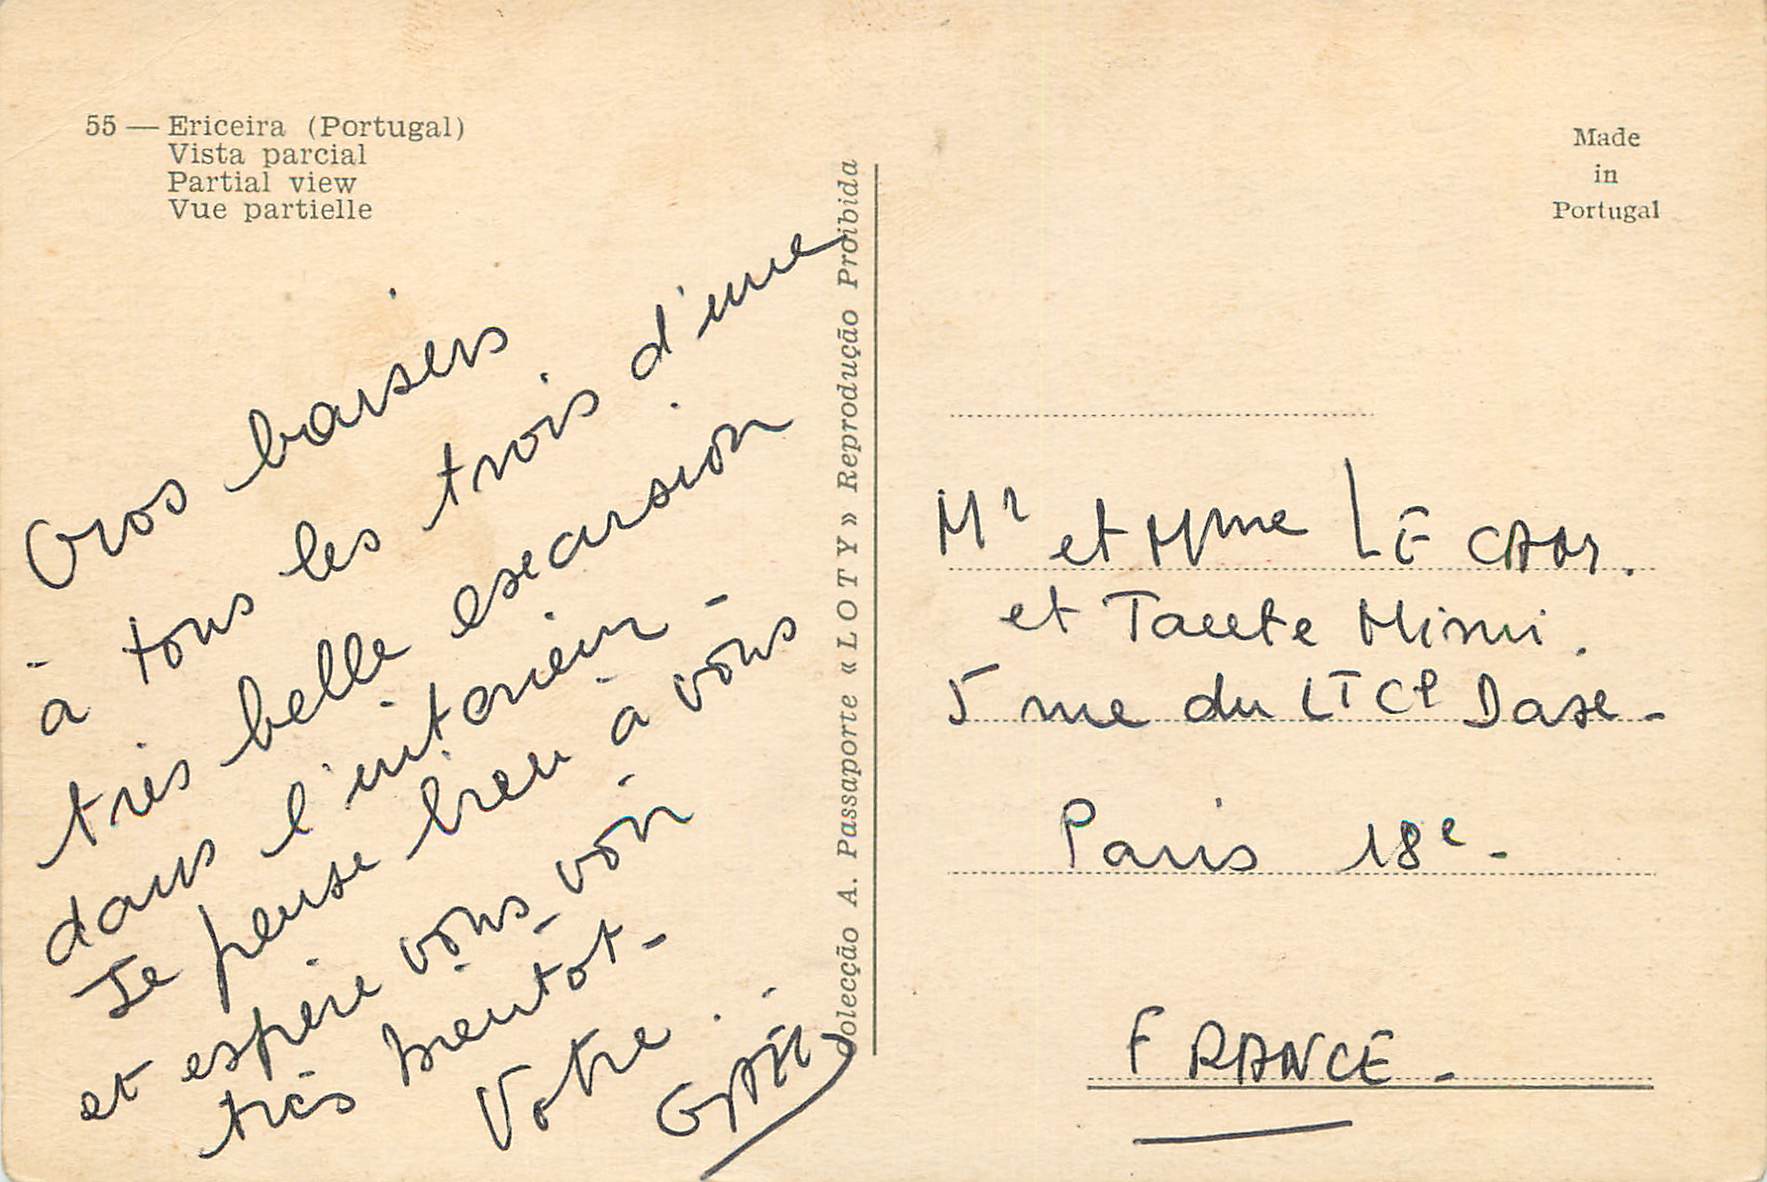 55 — Ericeira (Portugal)
Vista parcial
Partial view
Vue partielle
Made
in
Portugal
Colecção A. Passaporte «LOTY» Reprodução Proibida
Gros baisers
à tous les trois d'une
très belle excursion
dans l'intérieur -
Je pense bien à vous
et espère vous voir
très bientot -
Votre
Mr et Mme LE
et Tante Mimi.
5 rue du Lt Cl Dax -
Paris 18e -
FRANCE -